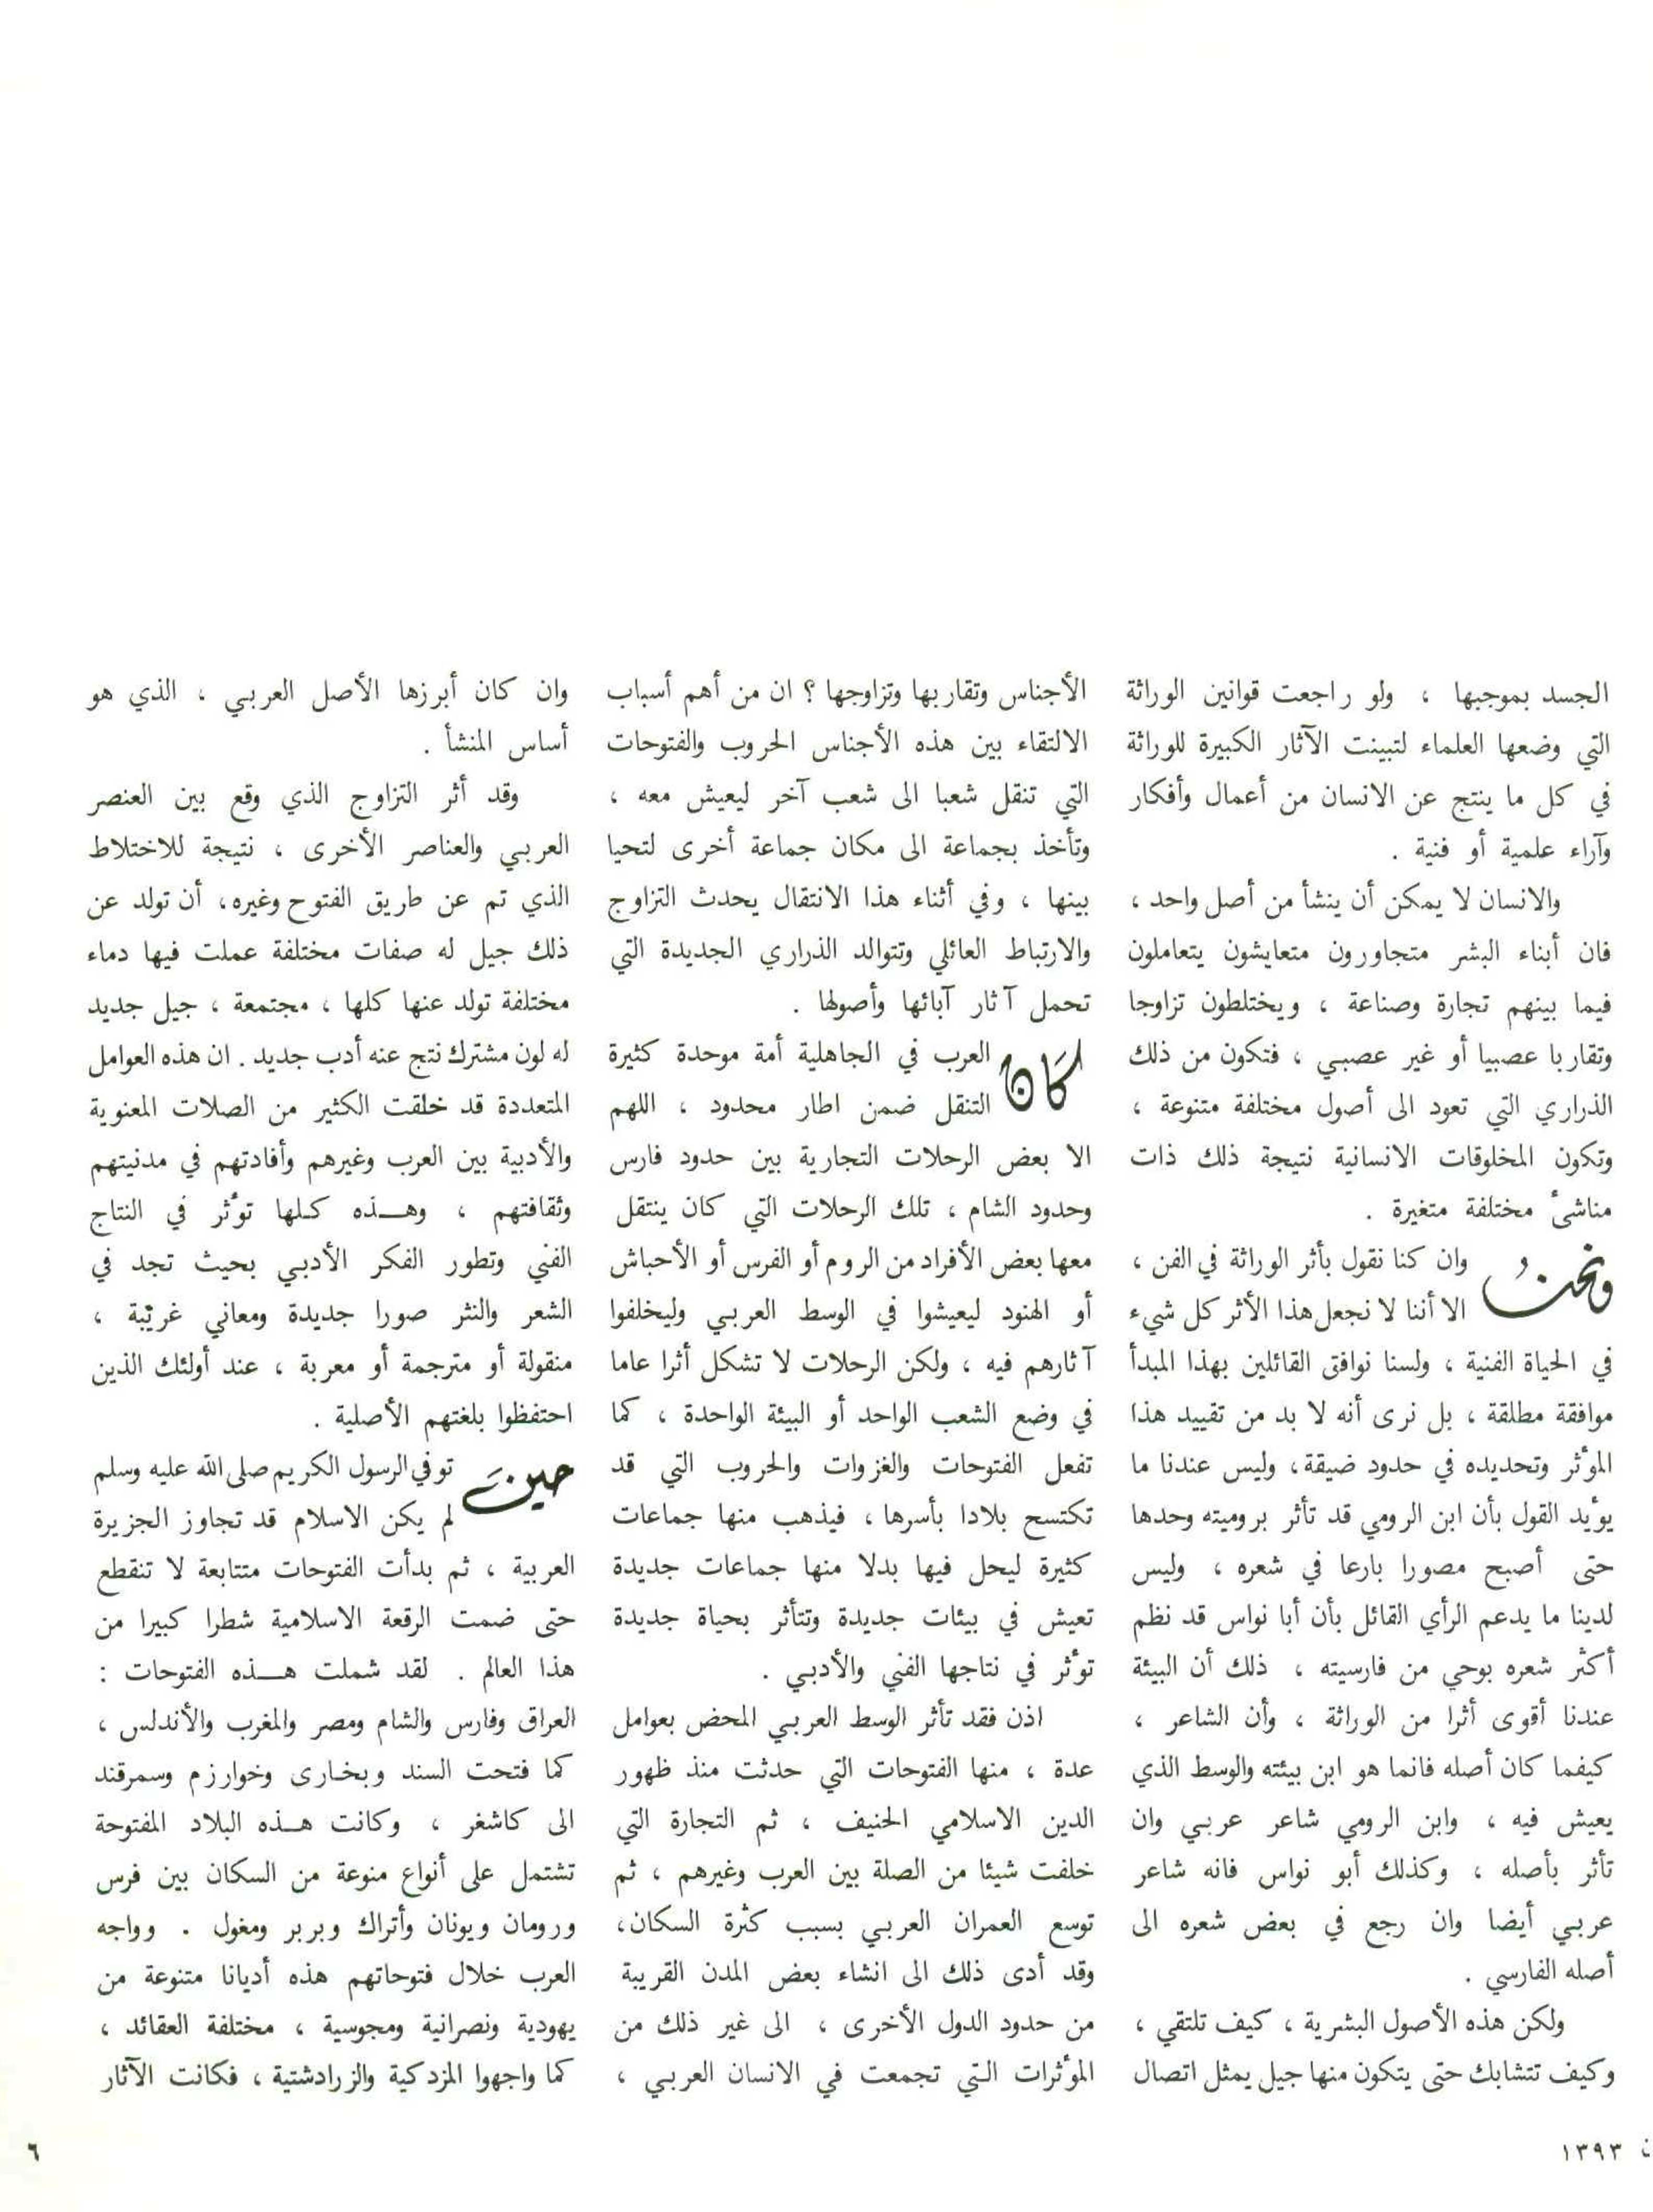 الجسد بموجبها ، ولو راجعت قوانين الوراثة
التي وضعها العلماء لتبينت الآثار الكبيرة للوراثة
في كل ما ينتج عن الانسان من أعمال وأفكار
وآراء علمية أو فنية .
والانسان لا يمكن أن ينشأ من أصل واحد ،
فان أبناء البشر متجاورون متعايشون يتعاملون
فيما بينهم تجارة وصناعة ، ويختلطون تزاوجا
وتقاربا عصبيا أو غير عصبي ، فتكون من ذلك
الذراري التي تعود الى أصول مختلفة متنوعة ،
وتكون المخلوقات الانسانية نتيجة ذلك ذات
مناشئ مختلفة متغيرة .
ونحنُ وان كنا نقول بأثر الوراثة في الفن ،
الا أننا لا نجعل هذا الأثر كل شيء
في الحياة الفنية ، ولسنا نوافق القائلين بهذا المبدأ
موافقة مطلقة ، بل نرى أنه لا بد من تقييد هذا
المؤثر وتحديده في حدود ضيقة، وليس عندنا ما
يؤيد القول بأن ابن الرومي قد تأثر بروميته وحدها
حتى أصبح مصورا بارعا في شعره ، وليس
لدينا ما يدعم الرأي القائل بأن أبا نواس قد نظم
أكثر شعره بوحي من فارسيته ، ذلك أن البيئة
عندنا أقوى أثرا من الوراثة ، وأن الشاعر ،
كيفما كان أصله فانما هو ابن بيئته والوسط الذي
يعيش فيه ، وابن الرومي شاعر عربي وان
تأثر بأصله ، وكذلك أبو نواس فانه شاعر
عربي أيضا وان رجع في بعض شعره الى
أصله الفارسي .
ولكن هذه الأصول البشرية ، كيف تلتقي ،
وكيف تتشابك حتى يتكون منها جيل يمثل اتصال
الأجناس وتقاربها وتزاوجها ؟ ان من أهم أسباب
الالتقاء بين هذه الأجناس الحروب والفتوحات
التي تنقل شعبا الى شعب آخر ليعيش معه ،
وتأخذ بجماعة الى مكان جماعة أخرى لتحيا
بينها ، وفي أثناء هذا الانتقال يحدث التزاوج
والارتباط العائلي وتتوالد الذراري الجديدة التي
تحمل آثار آبائها وأصولها .
كَانَ العرب في الجاهلية أمة موحدة كثيرة
التنقل ضمن اطار محدود ، اللهم
الا بعض الرحلات التجارية بين حدود فارس
وحدود الشام ، تلك الرحلات التي كان ينتقل
معها بعض الأفراد من الروم أو الفرس أو الأحباش
أو الهنود ليعيشوا في الوسط العربي وليخلفوا
آثارهم فيه ، ولكن الرحلات لا تشكل أثرا عاما
في وضع الشعب الواحد أو البيئة الواحدة ، كما
تفعل الفتوحات والغزوات والحروب التي قد
تكتسح بلادا بأسرها ، فيذهب منها جماعات
كثيرة ليحل فيها بدلا منها جماعات جديدة
تعيش في بيئات جديدة وتتأثر بحياة جديدة
تؤثر في نتاجها الفني والأدبي .
اذن فقد تأثر الوسط العربي المحض بعوامل
عدة ، منها الفتوحات التي حدثت منذ ظهور
الدين الاسلامي الحنيف ، ثم التجارة التي
خلفت شيئا من الصلة بين العرب وغيرهم ، ثم
توسع العمران العربي بسبب كثرة السكان،
وقد أدى ذلك الى انشاء بعض المدن القريبة
من حدود الدول الأخرى ، الى غير ذلك من
المؤثرات التي تجمعت في الانسان العربي ،
وان كان أبرزها الأصل العربي ، الذي هو
أساس المنشأ .
وقد أثر التزاوج الذي وقع بين العنصر
العربي والعناصر الأخرى ، نتيجة للاختلاط
الذي تم عن طريق الفتوح وغيره، أن تولد عن
ذلك جيل له صفات مختلفة عملت فيها دماء
مختلفة تولد عنها كلها ، مجتمعة ، جيل جديد
له لون مشترك نتج عنه أدب جديد . ان هذه العوامل
المتعددة قد خلقت الكثير من الصلات المعنوية
والأدبية بين العرب وغيرهم وأفادتهم في مدنيتهم
وثقافتهم ، وهــذه كلها تؤثر في النتاج
الفني وتطور الفكر الأدبي بحيث تجد في
الشعر والنثر صورا جديدة ومعاني غريبة ،
منقولة أو مترجمة أو معربة ، عند أولئك الذين
احتفظوا بلغتهم الأصلية .
حينَ توفي الرسول الكريم صلى الله عليه وسلم
لم يكن الاسلام قد تجاوز الجزيرة
العربية ، ثم بدأت الفتوحات متتابعة لا تنقطع
حتى ضمت الرقعة الاسلامية شطرا كبيرا من
هذا العالم . لقد شملت هــذه الفتوحات :
العراق وفارس والشام ومصر والمغرب والأندلس ،
كما فتحت السند وبخارى وخوارزم وسمرقند
الى كاشغر ، وكانت هــذه البلاد المفتوحة
تشتمل على أنواع منوعة من السكان بين فرس
ورومان ويونان وأتراك وبربر ومغول . وواجه
العرب خلال فتوحاتهم هذه أديانا متنوعة من
يهودية ونصرانية ومجوسية ، مختلفة العقائد ،
كما واجهوا المزدكية والزرادشتية ، فكانت الآثار
١٣٩٣
٦